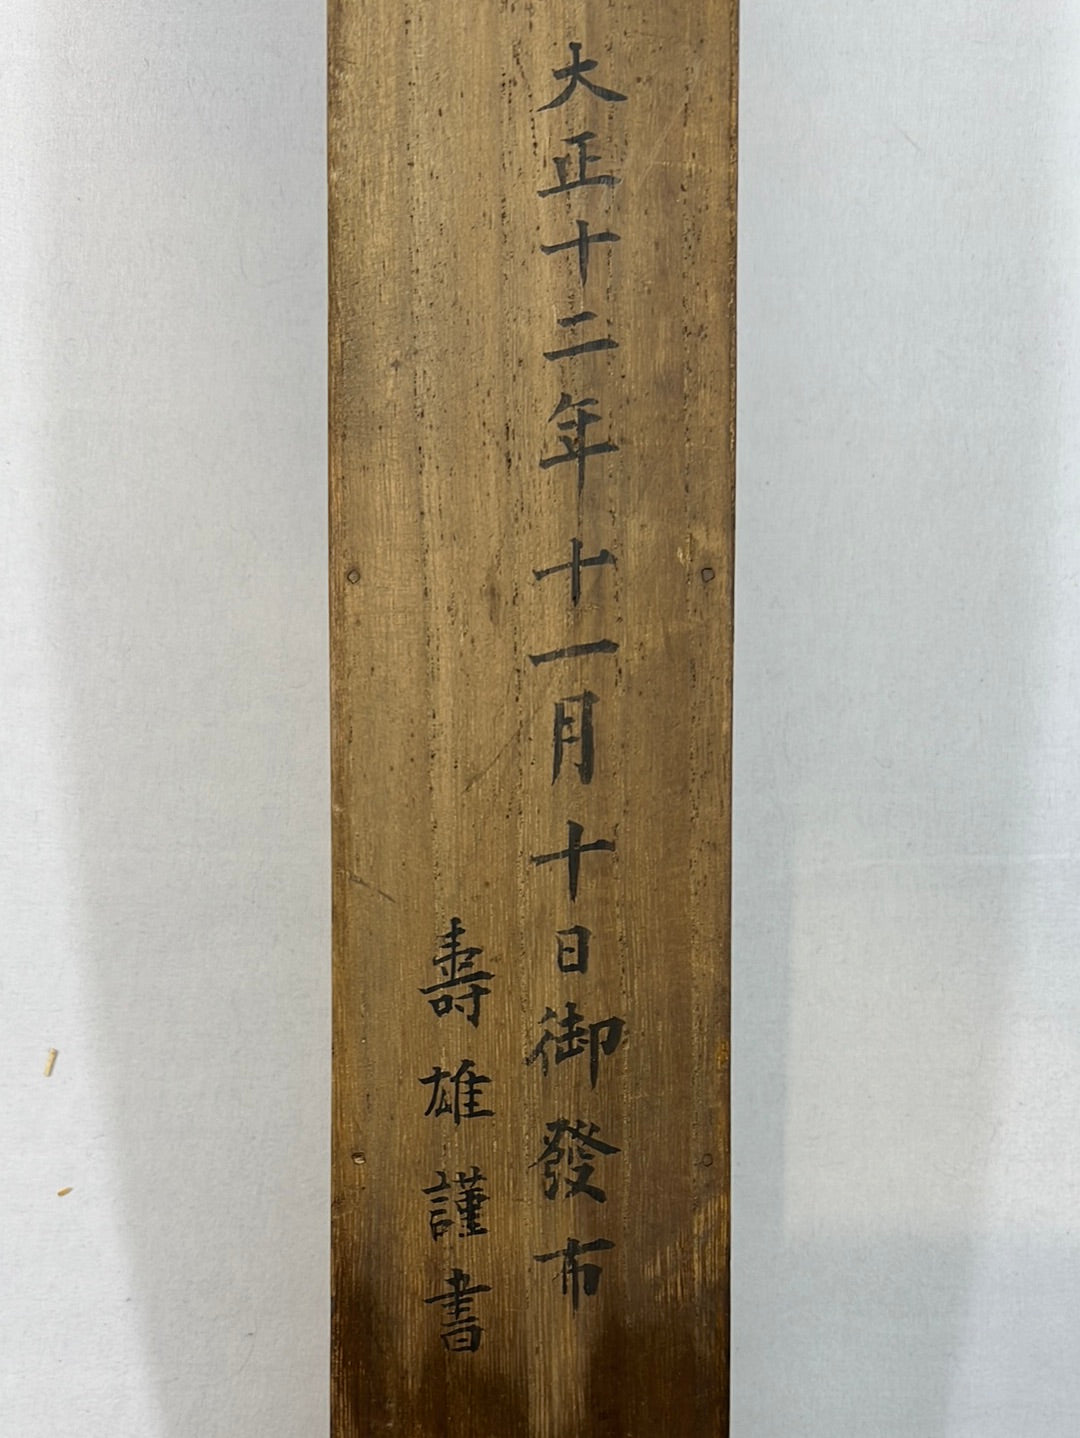 大正十二年十一月十日御發布
壽雄謹書